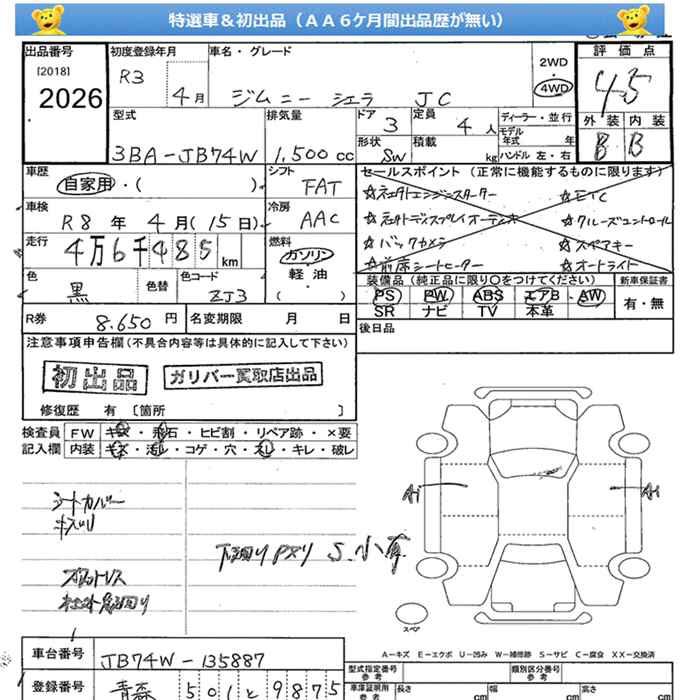 特選車＆初出品（ＡＡ６ケ月間出品歴が無い）
出品番号
[2018]
2026
初度登録年月
R3
4 月
車名・グレード
ジムニー シエラ JC
2WD
4WD
評価点
4.5
外装 内装
B B
型式
3BA-JB74W
排気量
1,500 cc
ドア 3
形状 SW
定員 4 人
積載 kg
ディーラー・並行
モデル年式 年
ハンドル 左・右
車歴
自家用・( )
シフト
FAT
車検
R8 年 4 月 (15 日)
冷房
AAC
走行
4万6千485 km
燃料
ガソリン
軽油
( )
色
黒
色替
色コード
ZJ3
セールスポイント（正常に機能するものに限ります）
☆ETC
☆クルーズコントロール
☆バックカメラ
☆スペアキー
☆前席シートヒーター
☆オートライト
装備品（純正品に限り○をつけてください）
PS PW ABS エアB AW
SR ナビ TV 本革
新車保証書
有・無
R券 8,650 円
名変期限 月 日
後日品
注意事項申告欄(不具合内容等は具体的に記入して下さい)
初出品
ガリバー買取店出品
修復歴 有 〔箇所 〕
検査員
記入欄
FW キズ・飛石・ヒビ割・リペア跡・×要
内装 キズ・汚レ・コゲ・穴・スレ・キレ・破レ
シートカバー
下廻りPスリ S.小有
A1
A1
スペア
A－キズ E－エクボ U－凹み W－補修跡 S－サビ C－腐食 XX－交換済
車台番号
JB74W-135887
登録番号
青森 501 と 9875
型式指定番号
参考
類別区分番号
参考
車庫証明用
参考
長さ cm
幅 cm
高さ cm